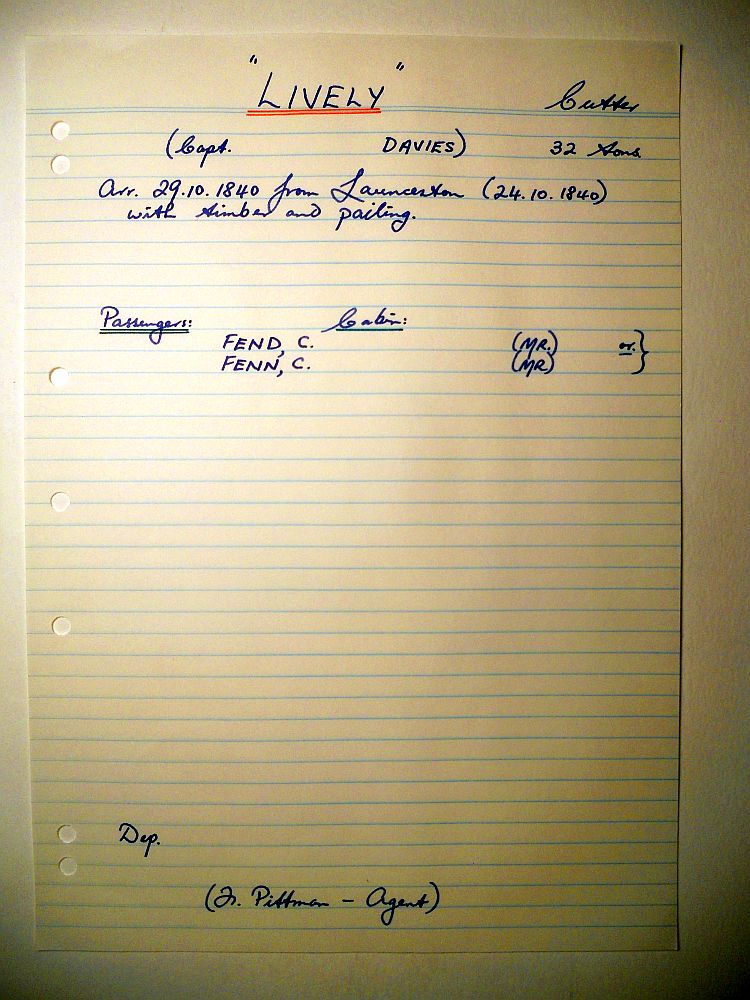 "LIVELY" Cutter
(Capt. DAVIES) 32 tons
Arr. 29.10.1840 from Launceston (24.10.1840)
with timber and pailing.
Passengers: Cabin:
FEND, C. (MR.) or. }
FENN, C. (MR)
Dep.
Pittman - Agent)